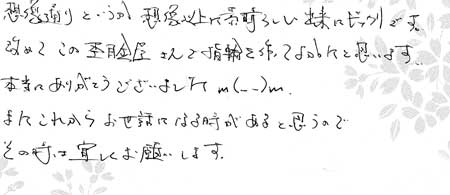 想像通りというか想像以上に素晴らしい出来にビックリです。
改めてこの工房さんで指輪を作ってよかったと思います。
本当にありがとうございました m(_ _)m
またこれからお世話になる時があると思うので
その時は宜しくお願いします。